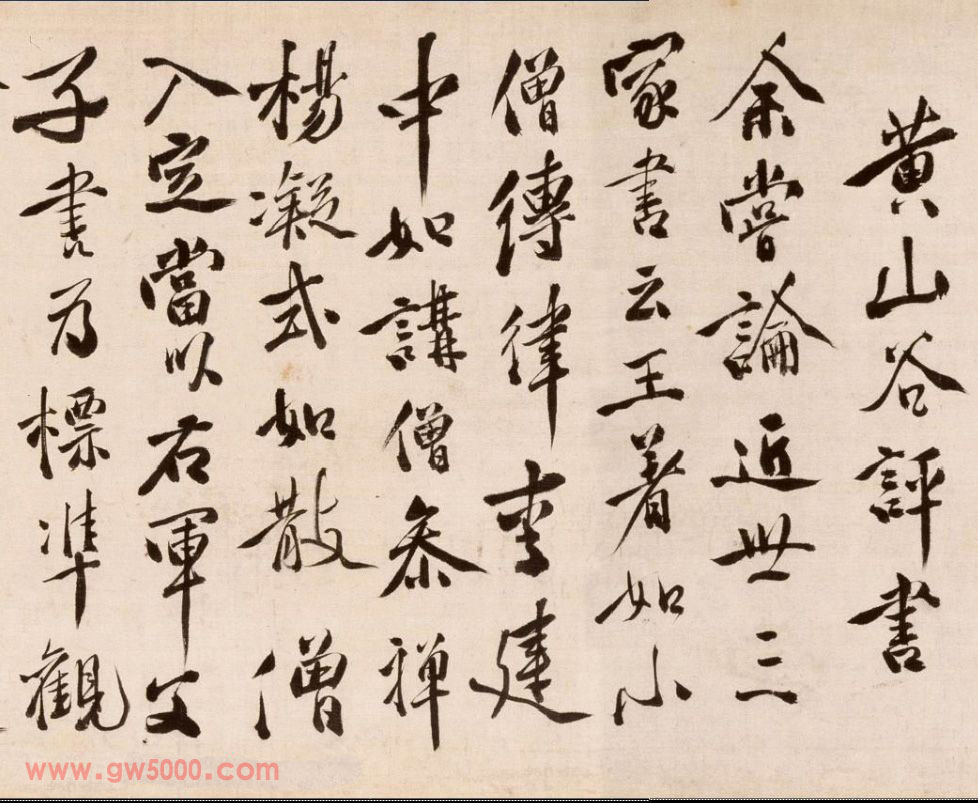 黄山谷評書
余嘗論近世三
家書云王著如小
僧縛律李建
中如講僧叅禅
楊凝式如散僧
入定當以右軍父
子書为標準觀
www.gw5000.com